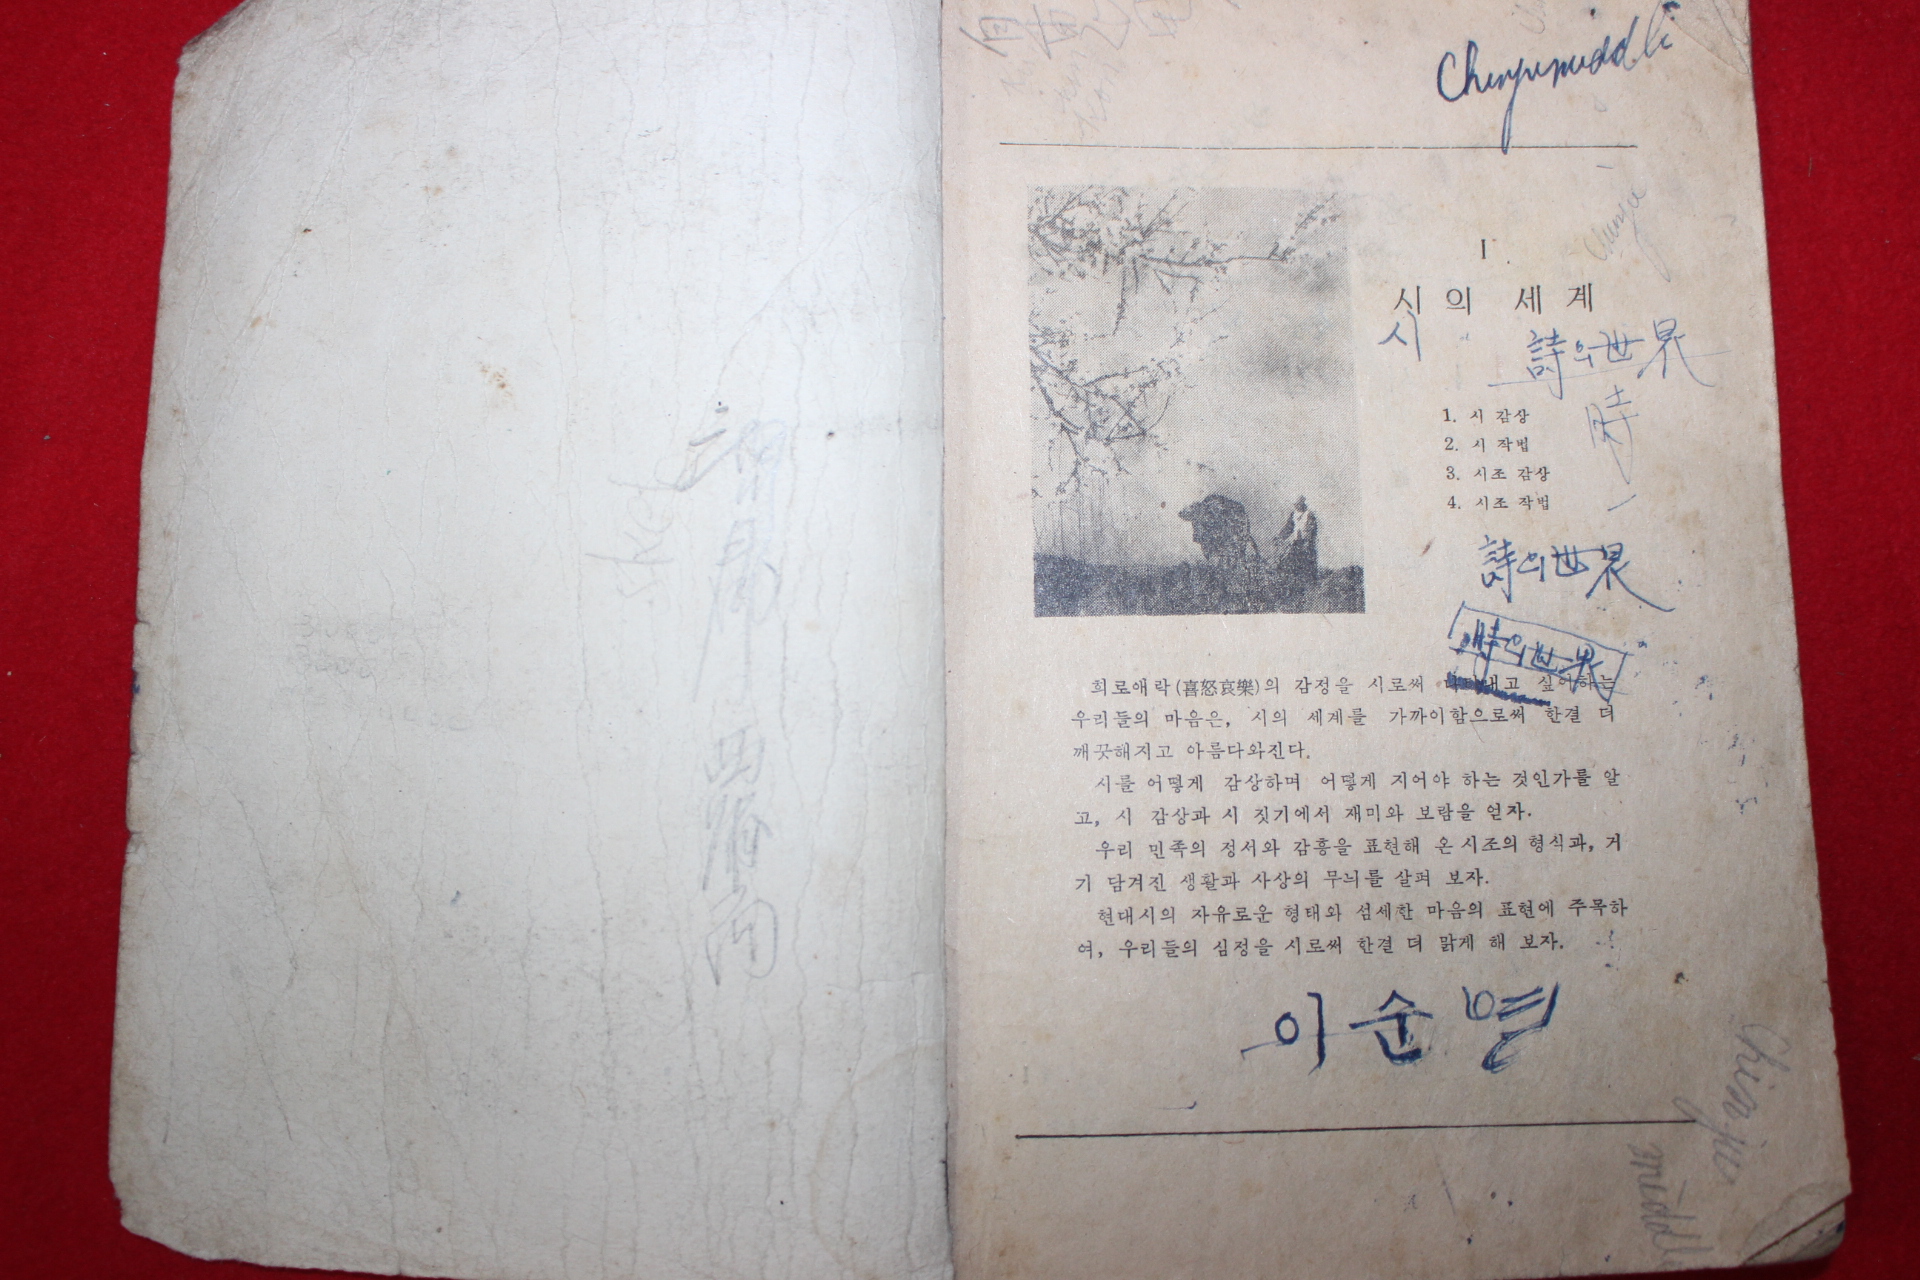 Chinju middl
I
시의 세계
시
詩의 世界
時
1. 시 감상
2. 시 작법
3. 시조 감상
4. 시조 작법
詩의 世界
詩의 世界
희로애락(喜怒哀樂)의 감정을 시로써 나타내고 싶어하는
우리들의 마음은, 시의 세계를 가까이함으로써 한결 더
깨끗해지고 아름다와진다.
시를 어떻게 감상하며 어떻게 지어야 하는 것인가를 알
고, 시 감상과 시 짓기에서 재미와 보람을 얻자.
우리 민족의 정서와 감흥을 표현해 온 시조의 형식과, 거
기 담겨진 생활과 사상의 무늬를 살펴 보자.
현대시의 자유로운 형태와 섬세한 마음의 표현에 주목하
여, 우리들의 심정을 시로써 한결 더 맑게 해 보자.
이순열
Chinju
middl